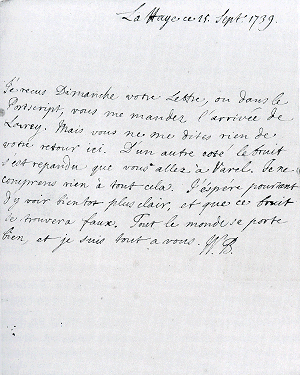 La Haye ce 15. Sept. 1739.
Je recus Dimanche votre Lettre, ou dans le
Postscript, vous me mandez l'arrivée de
Lovrey. Mais vous ne me dites rien de
votre retour ici. D'un autre coté le bruit
s'est repandu que vous allez à Varel. Je ne
comprens rien à tout cela. J'espère pourtant
d'y voir bientot plus clair, et que ce bruit
se trouvera faux. Tout le monde se porte
bien, et je suis tout a vous. W. B.